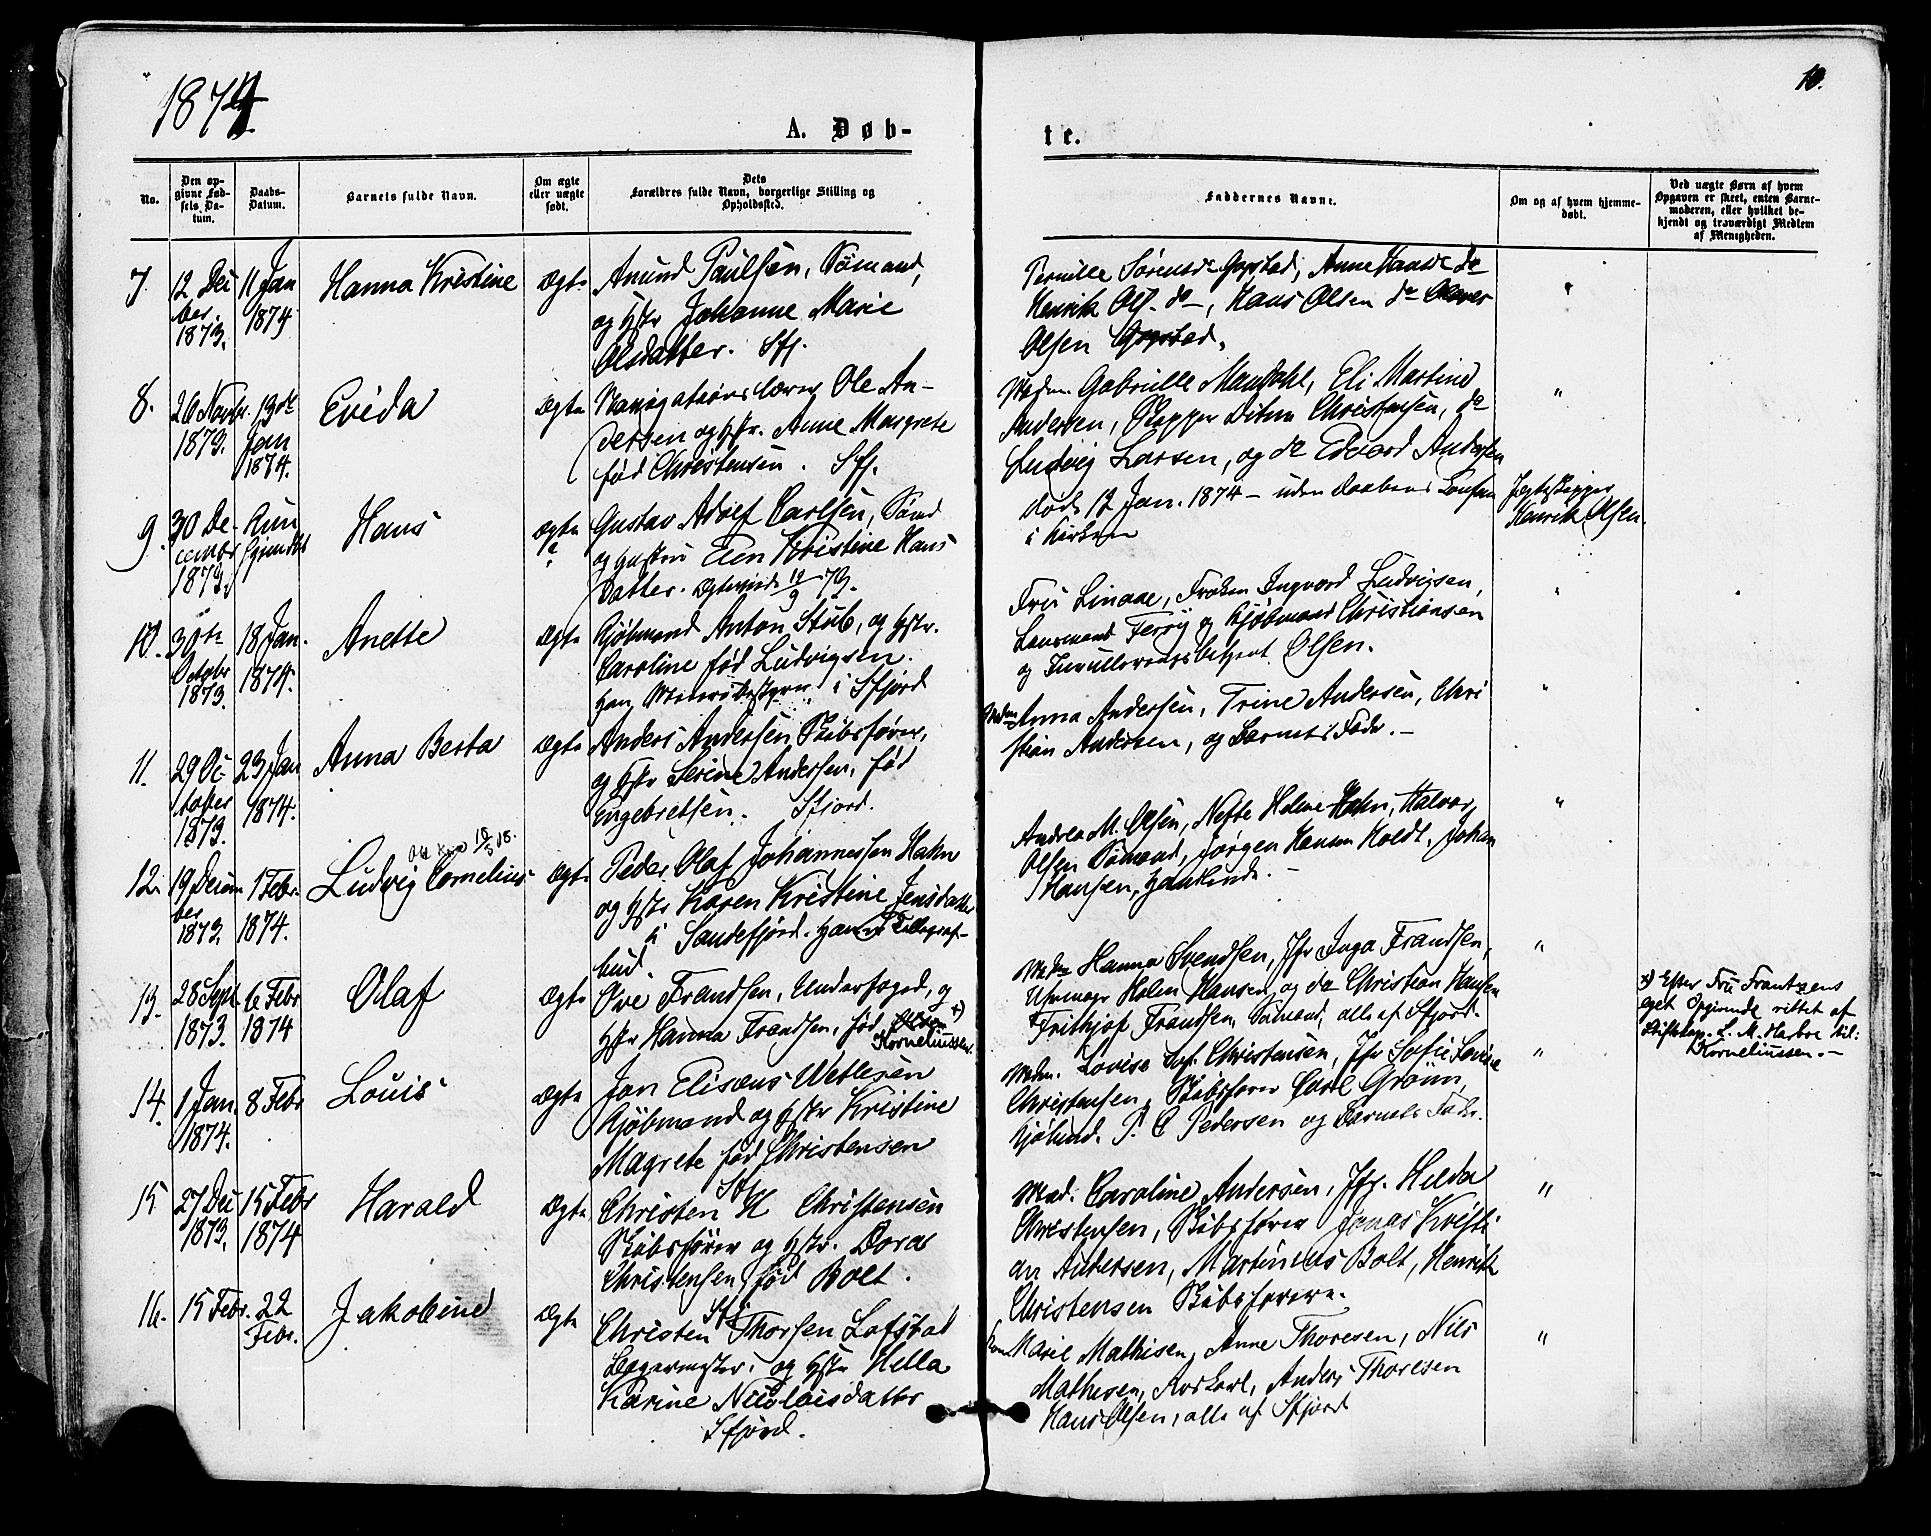 1874
10.
A. Døb-
te.
No.
Den op-
givne Fød-
sels Da-
tum.
Daabs-
Datum.
Barnets fulde Navn.
Om ægte
eller uægte
født.
Dets
Forældres fulde Navn, borgerlige Stilling og
Opholdssted.
Faddernes Navne.
Om og af hvem hjemme-
døbt.
Ved uægte Børn af hvem
Opgaven er skeet, enten Barne-
moderen, eller hvilket be-
kjendt og troværdigt Medlem
af Menigheden.
7.
12 Decbr.
1873.
11 Jan
1874
Hanna Kristine
Ægte
Anund Paulsen, Sømand,
og Hstr Johanne Marie
Olsdatter. Sfj.
Pernille Sørensd. Gogstad, Anne Hansd. do
Henrik Ols. do, Hans Olsen do
Olsen Gogstad.
"
8.
26 Novbr.
1873.
19de
Jan
1874.
Evida
Ægte
Navigationslærer Ole An-
dersen og Hstr. Anne Margrete
født Christensen. Sfj.
Madm. Gabrielle Mandahl, Eli Martine
Andersen, Skipper Ditm Christensen, do
Ludvig Larsen, og do Edvard Andersen
"
9.
30 De-
cember
1873.
Kun
hjemdøbt
Hans
Ægte
Gustav Adolf Carlsen, Sømd
og Hustru Elen Kristine Hans
Datter. Ægteviede 19/9 73.
død 12 Jan. 1874 - uden Daabens
i Kirken
Jagtskipper
Henrik Olsen.
10.
30te
October
1873.
18 Jan.
1874.
Anette
Ægte
Kjøbmand Anton Stub, og Hstr.
Caroline født Ludvigsen.
i Sfjord
Fru Linaae, Frøken Ingvard Ludvigsen,
Lensmand Ferry og Kjøbmand Christiansen
og Olsen.
"
11.
29 Oc-
tober
1873.
23 Jan
1874.
Anna Berta
Ægte
Anders Andersen Skibsfører,
og Hstr Serine Andersen, født
Engebretsen. Sfjord.
Madm Anna Andersen, Trine Andersen, Chri
stian Andersen, og Barnets Fader. -
"
12.
19 Decem
ber
1873.
1 Febr.
1874.
10/5 18.
Ludvig Cornelius
Ægte
Peder Olaf Johannessen Hahn
og Hstr Karen Kristine Jensdatter
i Sandefjord. Han er Telegraf-
bud.
Andrea M. Olsen, Nette Helene Hahn, Halvor
Olsen Sømand, Jørgen Hansen Holdt, Johan
Hansen,
"
13.
28 Sept
1873.
6 Febr
1874
Olaf
Ægte
Ove Frandsen, Underfoged, og
Hstr Hanna Frandsen, født Olsen x)
Korneliussen.
Madm Hanna Svendsen, Jfr Inga Frandsen,
Uhrmager Holm Hansen, og do Christian Hansen
Frithjof Frandsen, Sømand, alle af Sfjord.
"
x) Efter Fru Frantzens
eget Opgivende rettet af
Stiftskap. L. M. Harboe til:
Korneliussen. -
14.
1 Jan.
1874.
8 Febr
Louis
Ægte
Jan Elisæus Wetlesen
Kjøbmand og Hstr Kristine
Magrete født Christensen
Sfj
Madm. Lovise Sof. Christensen, Jfr Sofie Lovise
Christensen, Skibsfører Carl Grønn,
Kjøbmd. P. C Pedersen og Barnets Fader.
"
15
27 Dec
1873.
15 Febr
1874
Harald
Ægte
Christen H Christensen
Skibsfører og Hstr. Dora
Christensen, født Bolt.
Sfj
Mad. Caroline Andersen, Jfr. Hilda
Christensen, Skibsfører Jonas Kristi
an Andersen, Martinius Bolt, Henrik
Christensen Skibsførere.
"
16.
15 Febr.
22
Febr.
Jakobine
Ægte
Christen Thorsen Lofstad
Bagermester, og Hstr Hella
Karine Nicolaisdatter
Sfjord.
Kone Marie Mathisen, Anne Thoresen, Nils
Mathisen, Avskarl, Anders Thoresen
Hans Olsen, alle af Sfjord
"